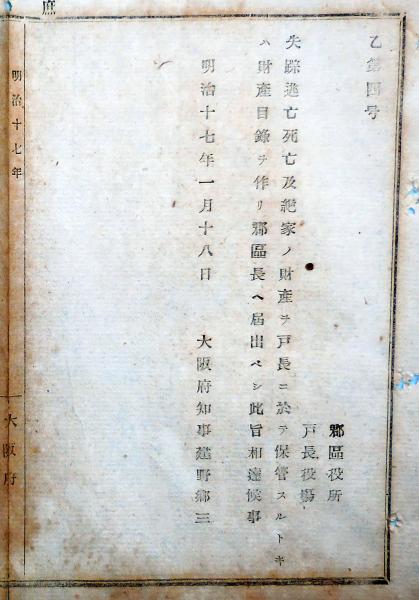 乙第四号
郡區役所
戸長役場
失踪逃亡死亡及絶家ノ財産ヲ戸長ニ於テ保管スルトキ
ハ財産目録ヲ作リ郡區長ヘ届出ベシ此旨相達候事
明治十七年一月十八日　大阪府知事建野郷三
庶
明治十七年
大阪府